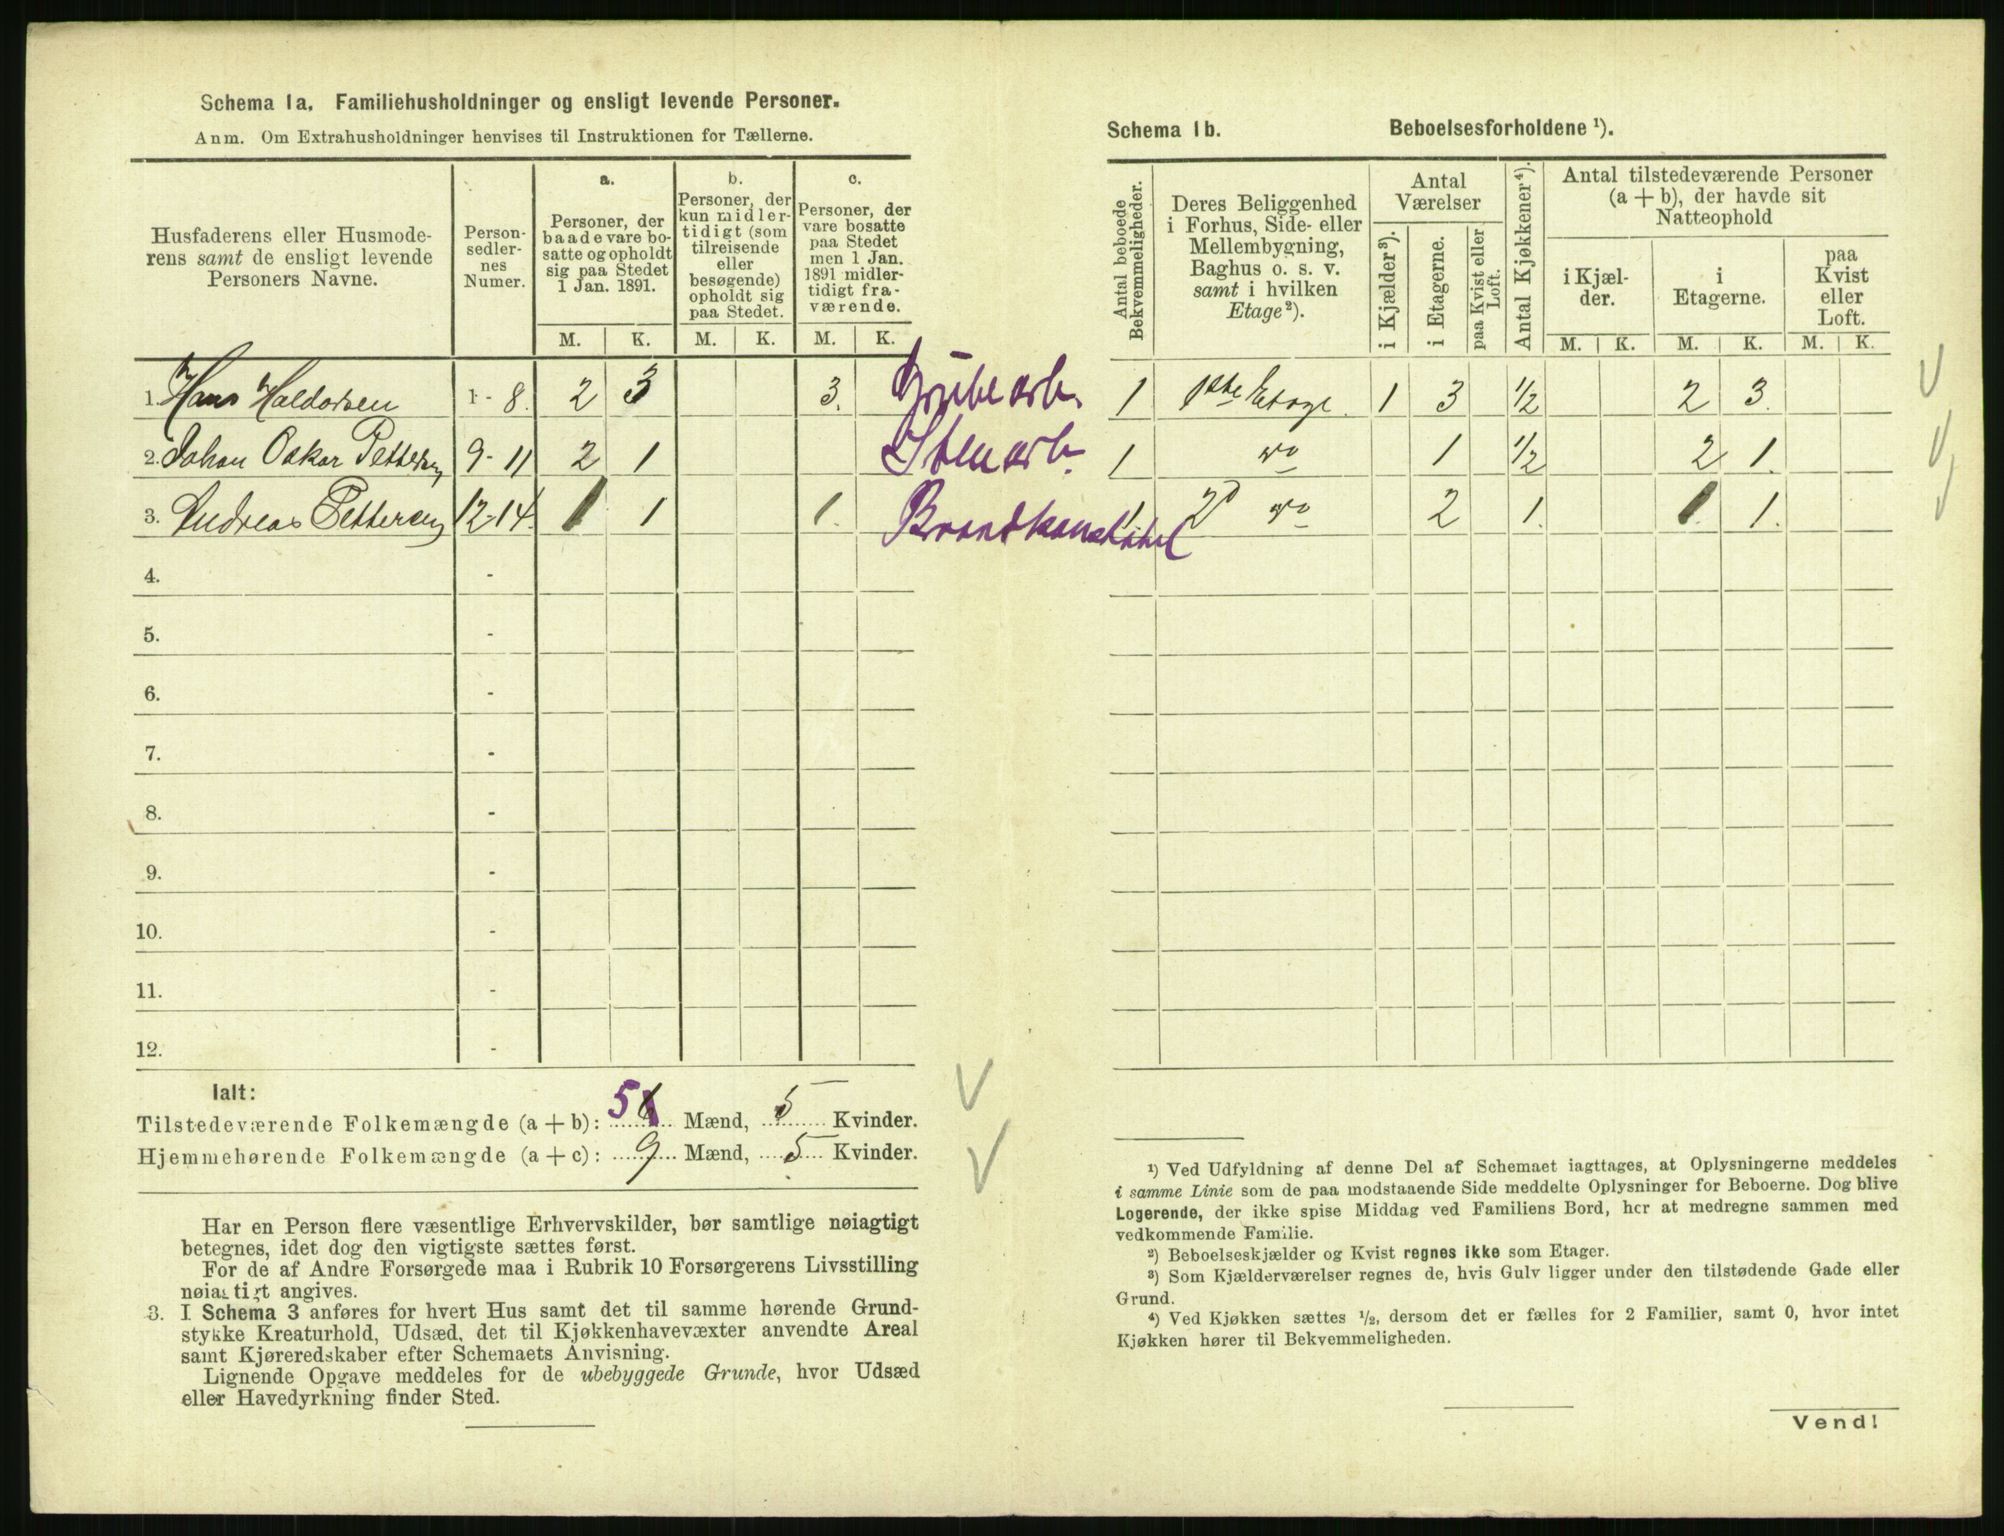 Schema 1a. Familiehusholdninger og ensligt levende Personer.
Anm. Om Extrahusholdninger henvises til Instruktionen for Tællerne.
Husfaderens eller Husmode-
rens samt de ensligt levende
Personers Navne.
Person-
sedler-
nes
Numer.
a.
Personer, der
baade vare bo-
satte og opholdt
sig paa Stedet
1 Jan. 1891.
b.
Personer, der
kun midler-
tidigt (som
tilreisende
eller
besøgende)
opholdt sig
paa Stedet.
c.
Personer, der
vare bosatte
paa Stedet
men 1 Jan.
1891 midler-
tidigt fra-
værende.
M. K. M. K. M. K.
1. Hans Haldorsen 1 - 8. 2 3 3. Grubearb.
2. Johan Oskar Pettersen 9 - 11 2 1 Stenarb.
3. Andreas Pettersen 12 - 14. 1 1 1. Brandkonstabel
4. -
5. -
6. -
7. -
8. -
9. -
10. -
11. -
12. -
Ialt:
Tilstedeværende Folkemængde (a + b): 5 Mænd, 5 Kvinder.
Hjemmehørende Folkemængde (a + c): 9 Mænd, 5 Kvinder.
Har en Person flere væsentlige Erhvervskilder, bør samtlige nøiagtigt
betegnes, idet dog den vigtigste sættes først.
For de af Andre Forsørgede maa i Rubrik 10 Forsørgerens Livsstilling
nøiagtigt angives.
3. I Schema 3 anføres for hvert Hus samt det til samme hørende Grund-
stykke Kreaturhold, Udsæd, det til Kjøkkenhavevæxter anvendte Areal
samt Kjøreredskaber efter Schemaets Anvisning.
Lignende Opgave meddeles for de ubebyggede Grunde, hvor Udsæd
eller Havedyrkning finder Sted.
Schema 1b. Beboelsesforholdene ¹).
Antal beboede
Bekvemmeligheder.
Deres Beliggenhed
i Forhus, Side- eller
Mellembygning,
Baghus o. s. v.
samt i hvilken
Etage²).
Antal
Værelser
i Kjælder³).
i Etagerne.
paa Kvist eller
Loft.
Antal Kjøkkener⁴).
Antal tilstedeværende Personer
(a + b), der havde sit
Natteophold
i Kjæl-
der.
i
Etagerne.
paa
Kvist
eller
Loft.
M. K. M. K. M. K.
1 1ste Etage. 1 3 ½ 2 3.
1 do 1 ½ 2 1.
1. 2d do 2 1. 1. 1.
¹) Ved Udfyldning af denne Del af Schemaet iagttages, at Oplysningerne meddeles
i samme Linie som de paa modstaaende Side meddelte Oplysninger for Beboerne. Dog blive
Logerende, der ikke spise Middag ved Familiens Bord, her at medregne sammen med
vedkommende Familie.
²) Beboelseskjælder og Kvist regnes ikke som Etager.
³) Som Kjælderværelser regnes de, hvis Gulv ligger under den tilstødende Gade eller
Grund.
⁴) Ved Kjøkken sættes ½, dersom det er fælles for 2 Familier, samt 0, hvor intet
Kjøkken hører til Bekvemmeligheden.
Vend!